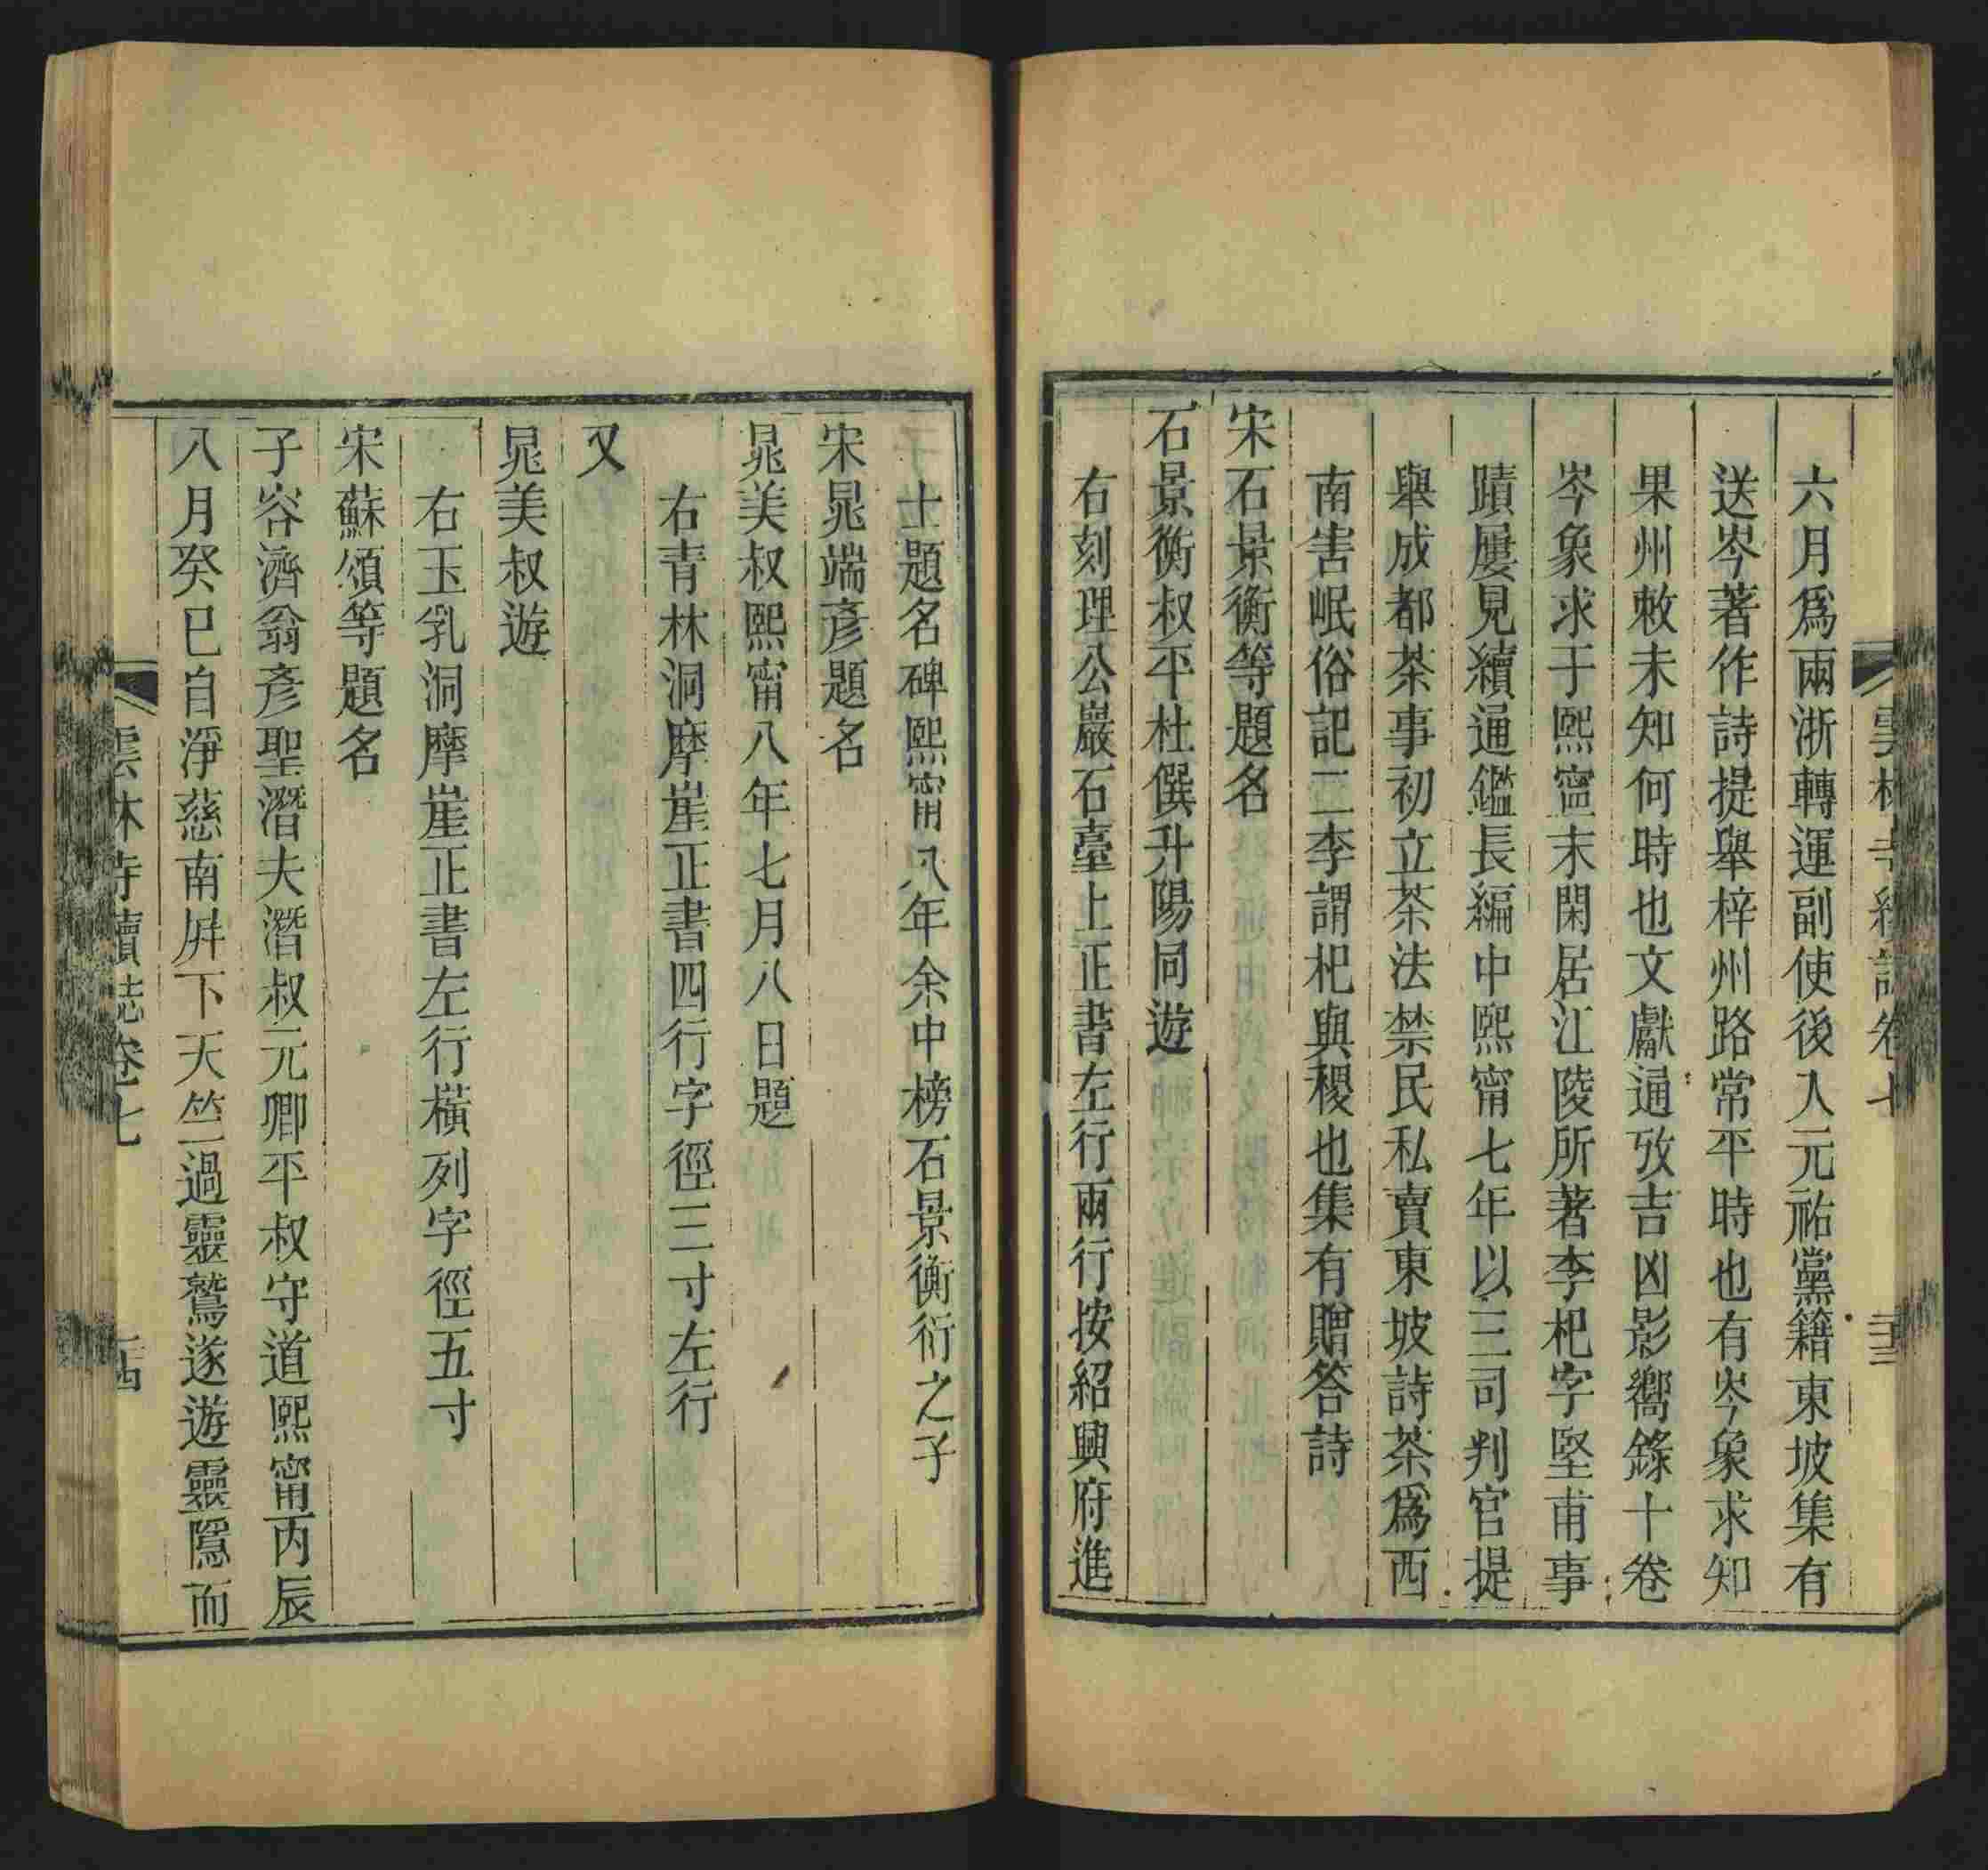 六月爲兩浙轉運副使後入元祐黨籍東坡集有
送岑著作詩提舉梓州路常平時也有岑象求知
果州敕未知何時也文獻通攷吉凶影嚮錄十卷
岑象求于熙寍末閑居江陵所著李杞字堅甫事
蹟屢見續通鑑長編中熙甯七年以三司判官提
舉成都茶事初立茶法禁民私賣東坡詩茶爲西
南害岷俗記二李謂杞與稷也集有贈答詩
宋石景衡等題名
石景衡叔平杜僎升陽同遊
右刻理公巖石臺上正書左行兩行按紹興府進
士題名碑熙甯八年余中榜石景衡衍之子
宋晁端彥題名
晁美叔熙甯八年七月八日題
右青林洞摩崖正書四行字徑三寸左行
又
晁美叔遊
右玉乳洞摩崖正書左行橫列字徑五寸
宋蘇頌等題名
子容濟翁彥聖潛夫潛叔元卿平叔守道熙甯丙辰
八月癸巳自淨慈南屏下天竺過靈鷲遂遊靈隱而
雲林寺續誌卷七